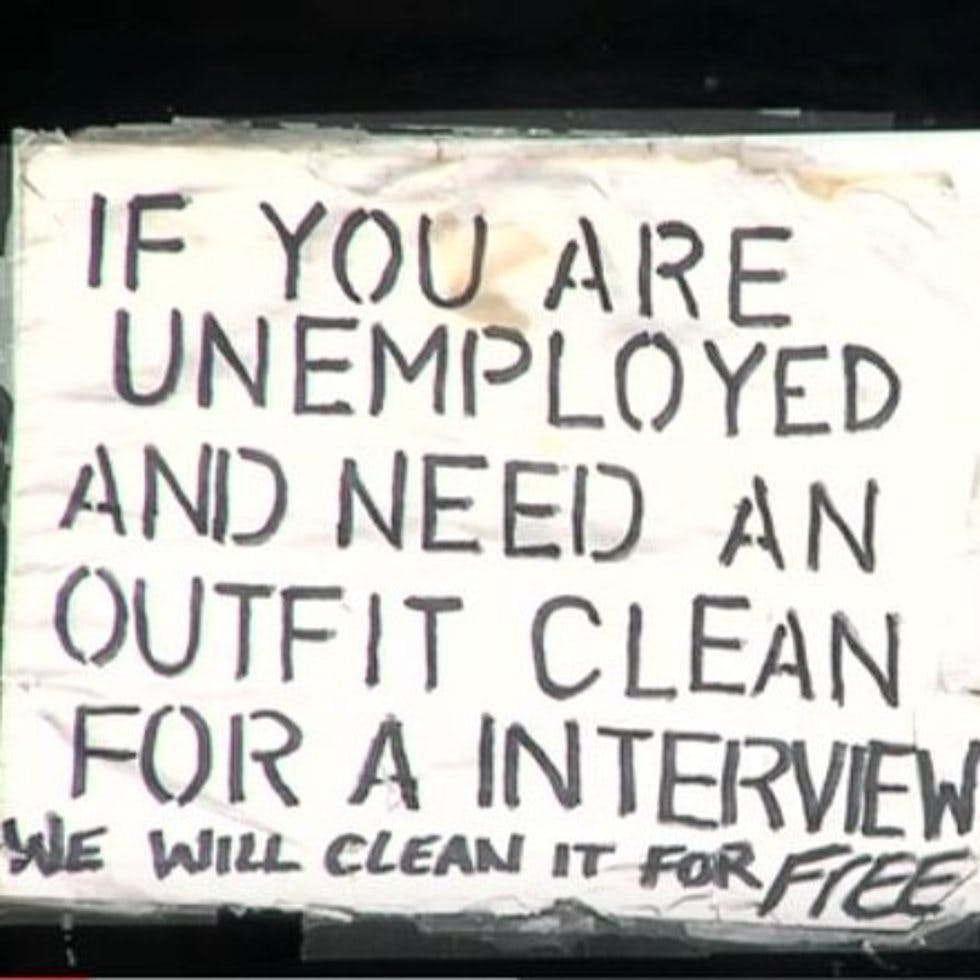 IF YOU ARE
UNEMPLOYED
AND NEED AN
OUTFIT CLEAN
FOR A INTERVIEW
WE WILL CLEAN IT FOR FREE